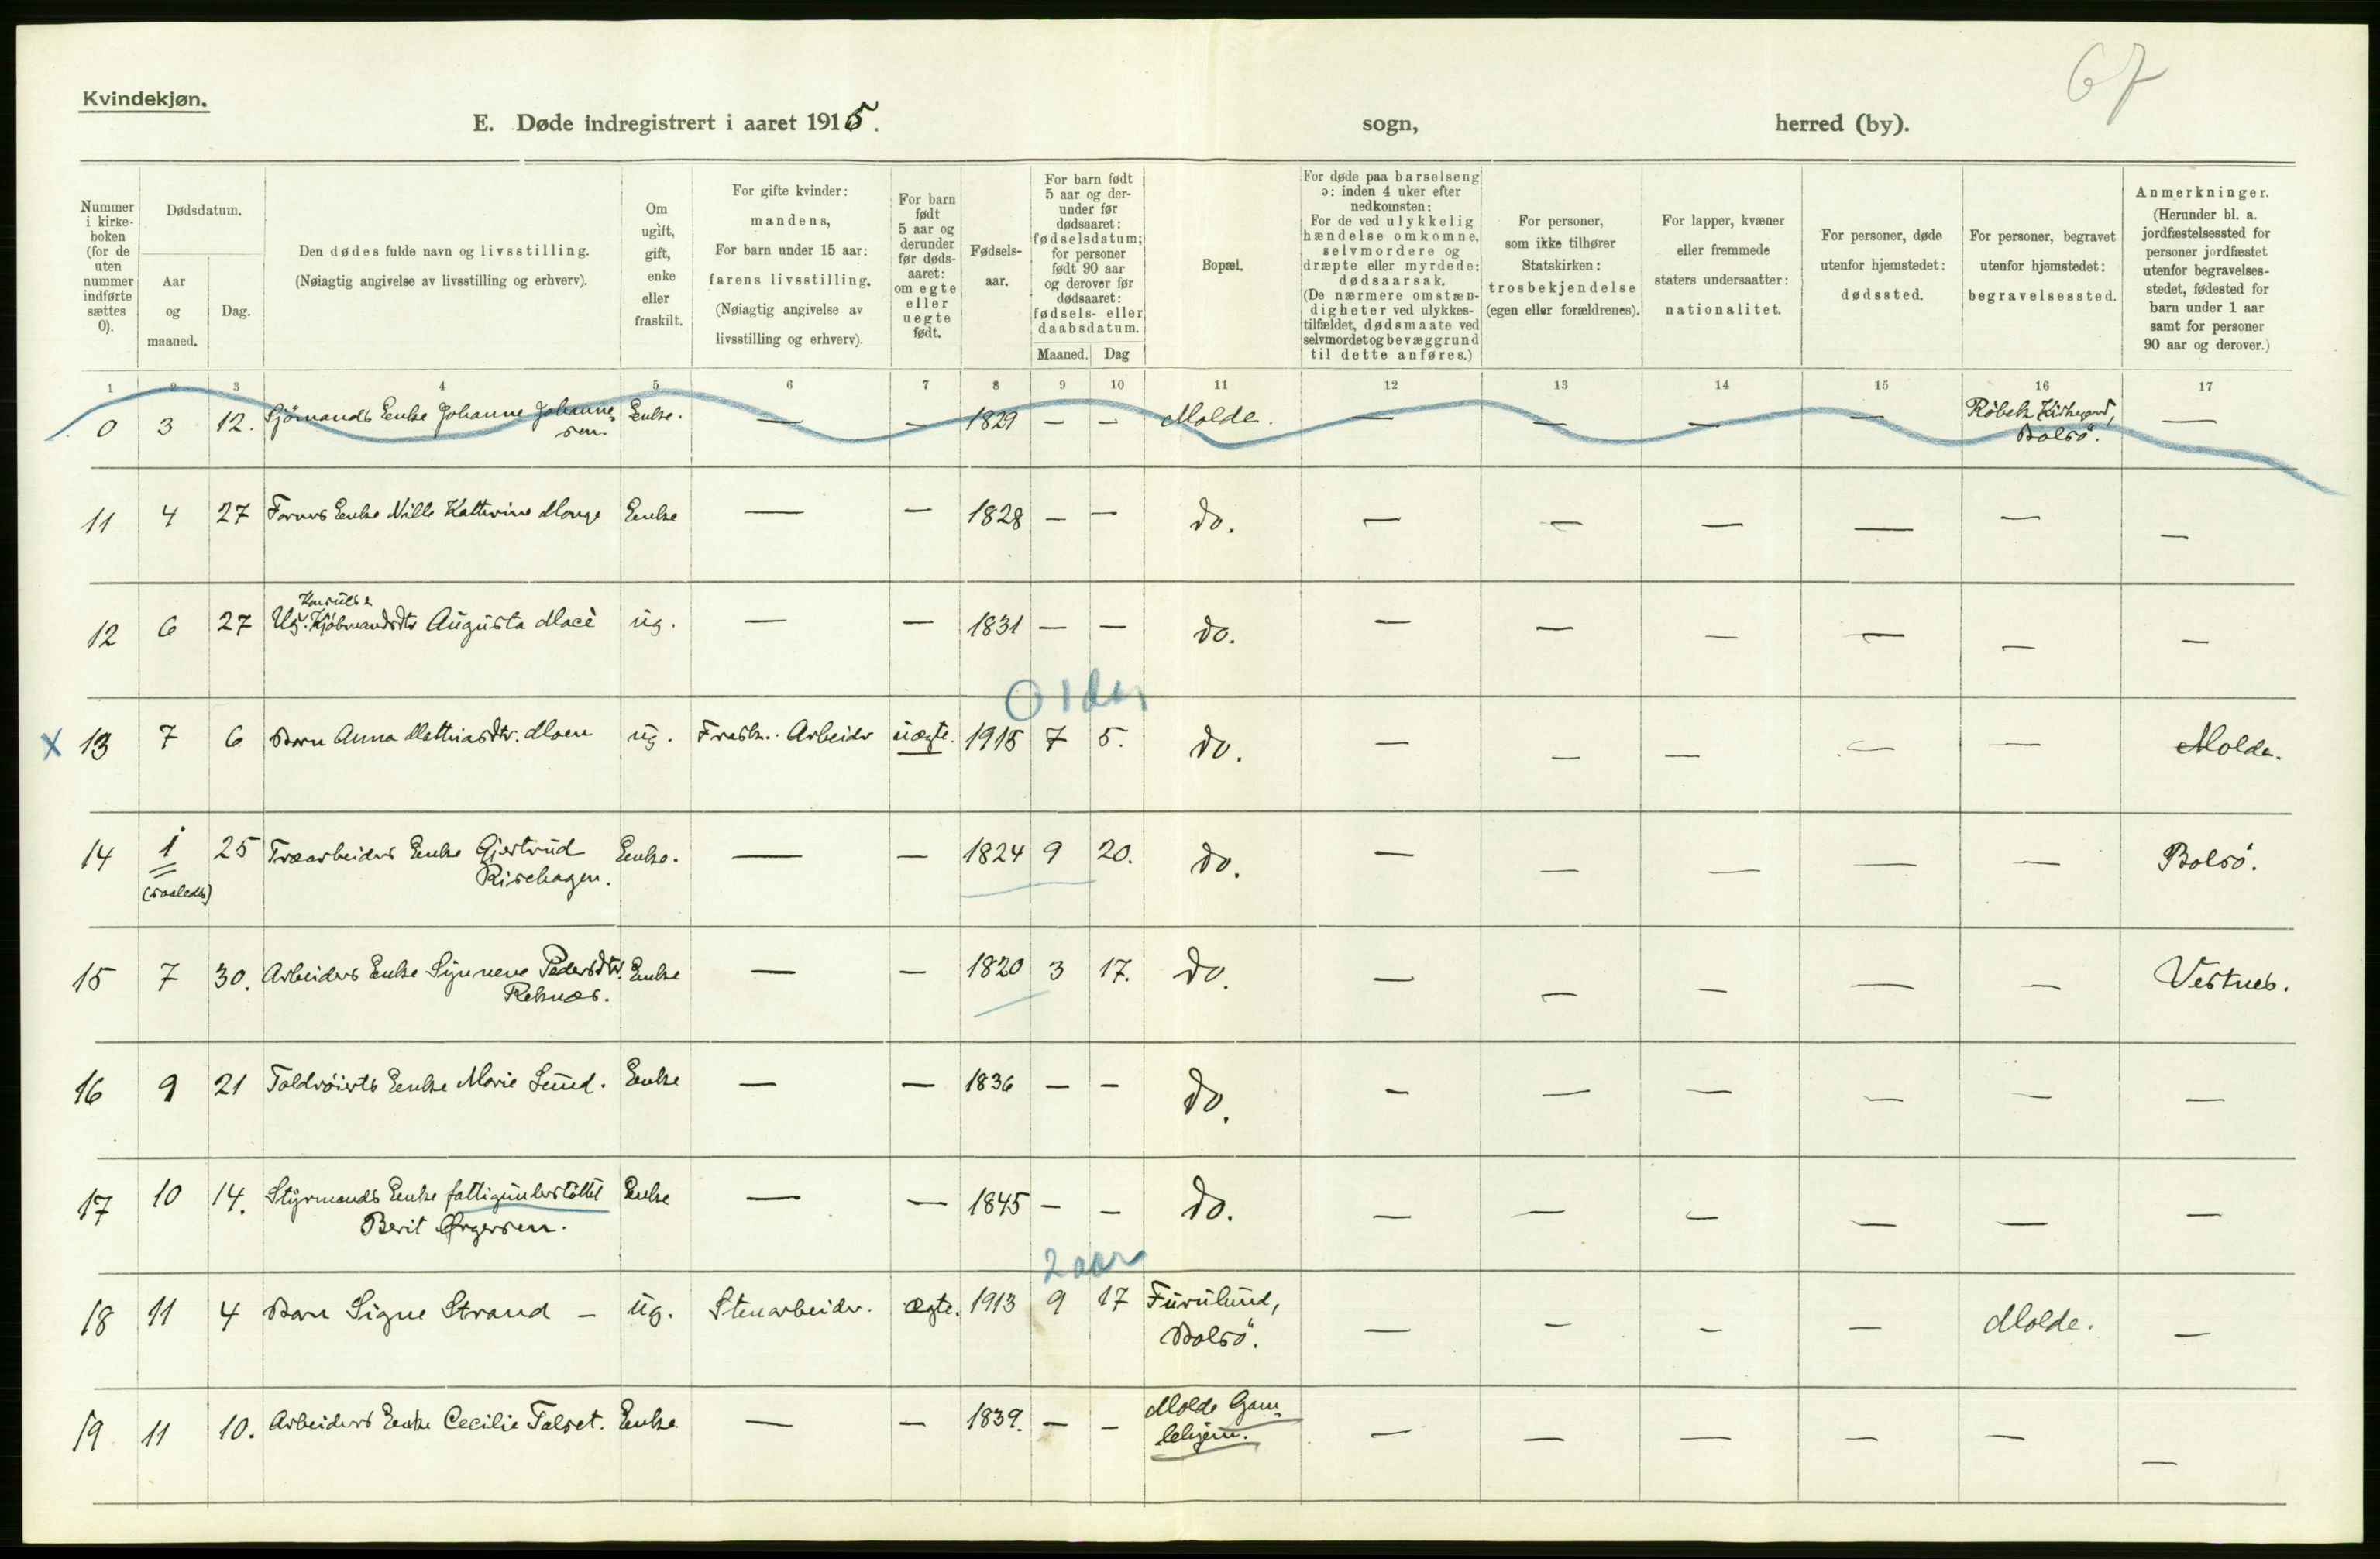 67
Kvindekjøn.
E. Døde indregistrert i aaret 1915. sogn, herred (by).
Nummer i kirke-boken (for de uten nummer indførte sættes 0).
Dødsdatum.
Aar og maaned.
Dag.
Den dødes fulde navn og livsstilling.
(Nøiagtig angivelse av livsstilling og erhverv).
Om ugift, gift, enke eller fraskilt.
For gifte kvinder: mandens,
For barn under 15 aar: farens livsstilling.
(Nøiagtig angivelse av livsstilling og erhverv).
For barn født 5 aar og derunder før døds-aaret: om egte eller uegte født.
Fødsels-aar.
For barn født 5 aar og der-under før dødsaaret: fødselsdatum; for personer født 90 aar og derover før dødsaaret: fødsels- eller daabsdatum.
Maaned. Dag
Bopæl.
For døde paa barselseng ɔ: inden 4 uker efter nedkomsten:
For de ved ulykkelig hændelse omkomne, selvmordere og dræpte eller myrdede: dødsaarsak.
(De nærmere omstæn-digheter ved ulykkes-tilfældet, dødsmaate ved selvmordet og bevæggrund til dette anføres.)
For personer, som ikke tilhører Statskirken: trosbekjendelse (egen eller forældrenes).
For lapper, kvæner eller fremmede staters undersaatter: nationalitet.
For personer, døde utenfor hjemstedet: dødssted.
For personer, begravet utenfor hjemstedet: begravelsessted.
Anmerkninger.
(Herunder bl. a. jordfæstelsessted for personer jordfæstet utenfor begravelses-stedet, fødested for barn under 1 aar samt for personer 90 aar og derover.)
1 2 3 4 5 6 7 8 9 10 11 12 13 14 15 16 17
0 3 12. Sjömands Enke Johanne Johanne- Enke. — — 1829 — — Molde. — — — — Röbek Kirkegaard, —
sen. Bolsö.
11 4 27 Enke Nille Kathrine Monge Enke — — 1828 — — do. — — — — — —
Konsuls &
12 6 27 Ug. Kjöbmandsdtr Augusta Macè ug. — — 1831 — — do. — — — — — —
0 1 dag
X 13 7 6 Barn Anna Mathiasdtr. Moen ug. Frask. Arbeider uægte. 1915 7 5. do. — — — — — Molde.
14 1 25 Træarbeiders Enke Gjertrud Enke. — — 1824 9 20. do. — — — — — Bolsö.
(saaledes) Risehagen.
15 7 30. Arbeiders Enke Synneve Pedersdtr. Enke — — 1820 3 17. do. — — — — — Vestnes.
Reknæs.
16 9 21 Toldröierts Enke Marie Lund. Enke — — 1836 — — do. — — — — — —
17 10 14. Styrmands Enke fattigunderstöttet Enke — — 1845 — — do. — — — — — —
Berit Ørgersen.
2 aar
18 11 4 Barn Signe Strand — ug. Stenarbeider. ægte. 1913 9 17 Furulund, — — — — Molde. —
Bolsö.
19 11 10. Arbeiders Enke Cecilie Talset. Enke — — 1839. — — Molde Gam- — — — — — —
lehjem.